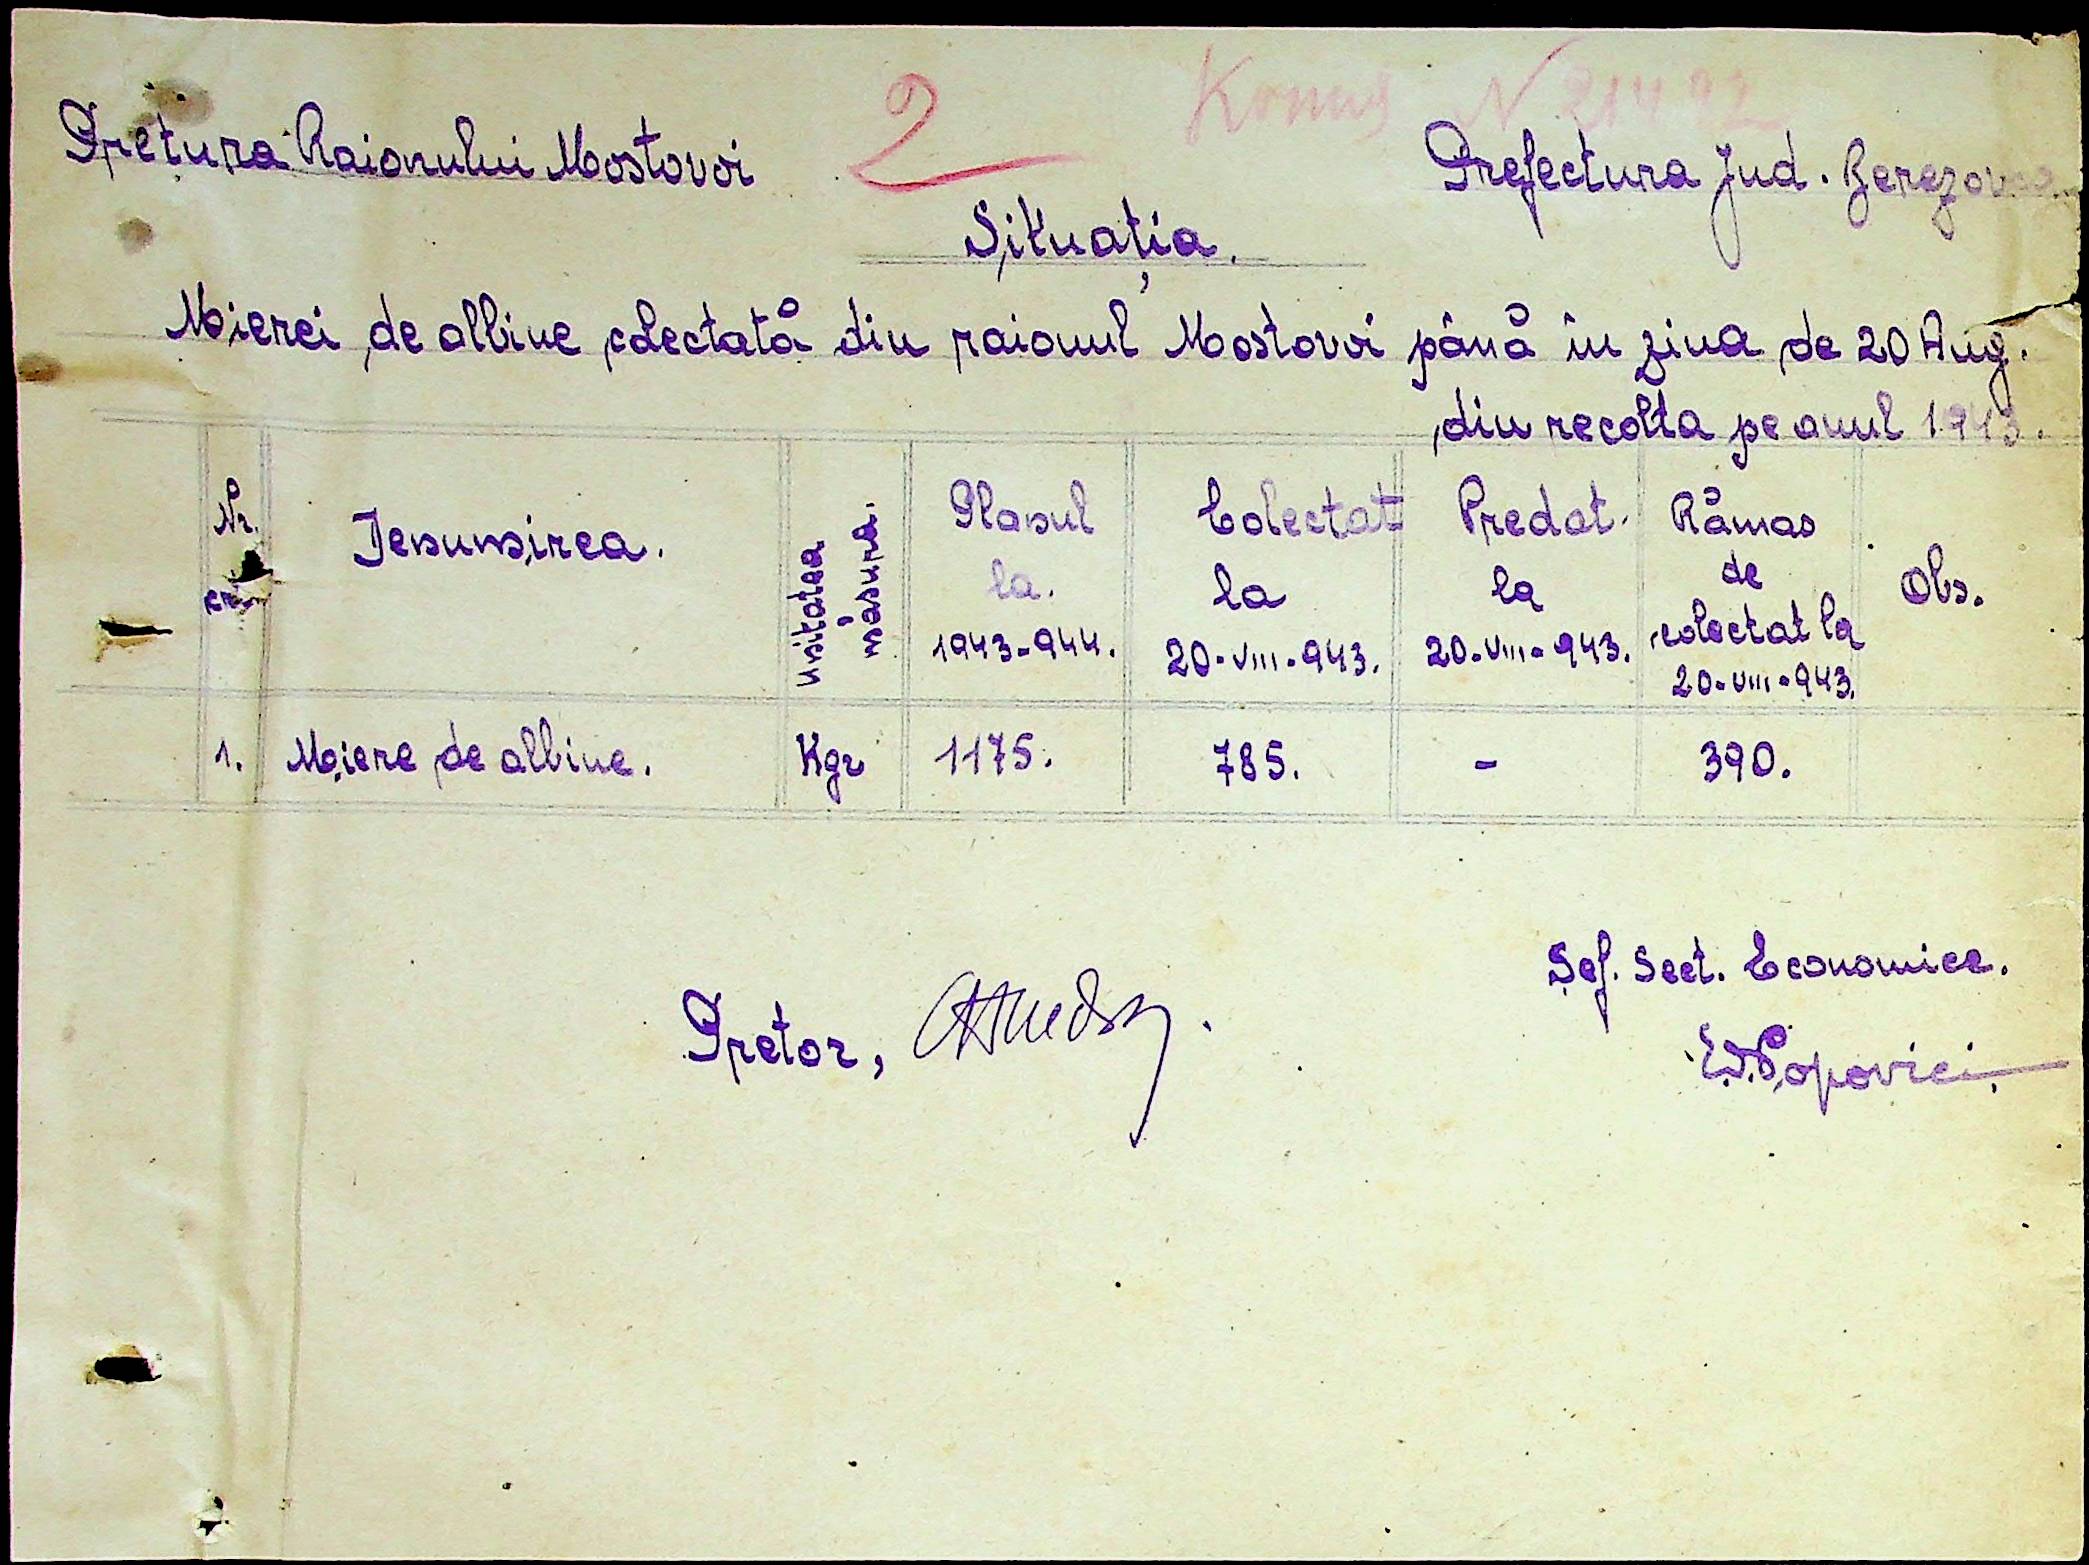 2
N 21492
Pretura Raionului Mostovoi
Prefectura Jud. Berezovca
Situația.
Mierei de albine colectată din raionul Mostovoi până în ziua de 20 Aug.
din recolta pe anul 1943.
Nr. crt.
Denumirea.
unitatea măsura.
Plasul la. 1943-944.
Colectat la 20-VIII-943.
Predat la 20-VIII-943.
Rămas de colectat la 20-VIII-943.
Obs.
1. Miere de albine. Kgr 1175. 785. - 390.
Șef. Sect. Economice.
Pretor,
Popovici